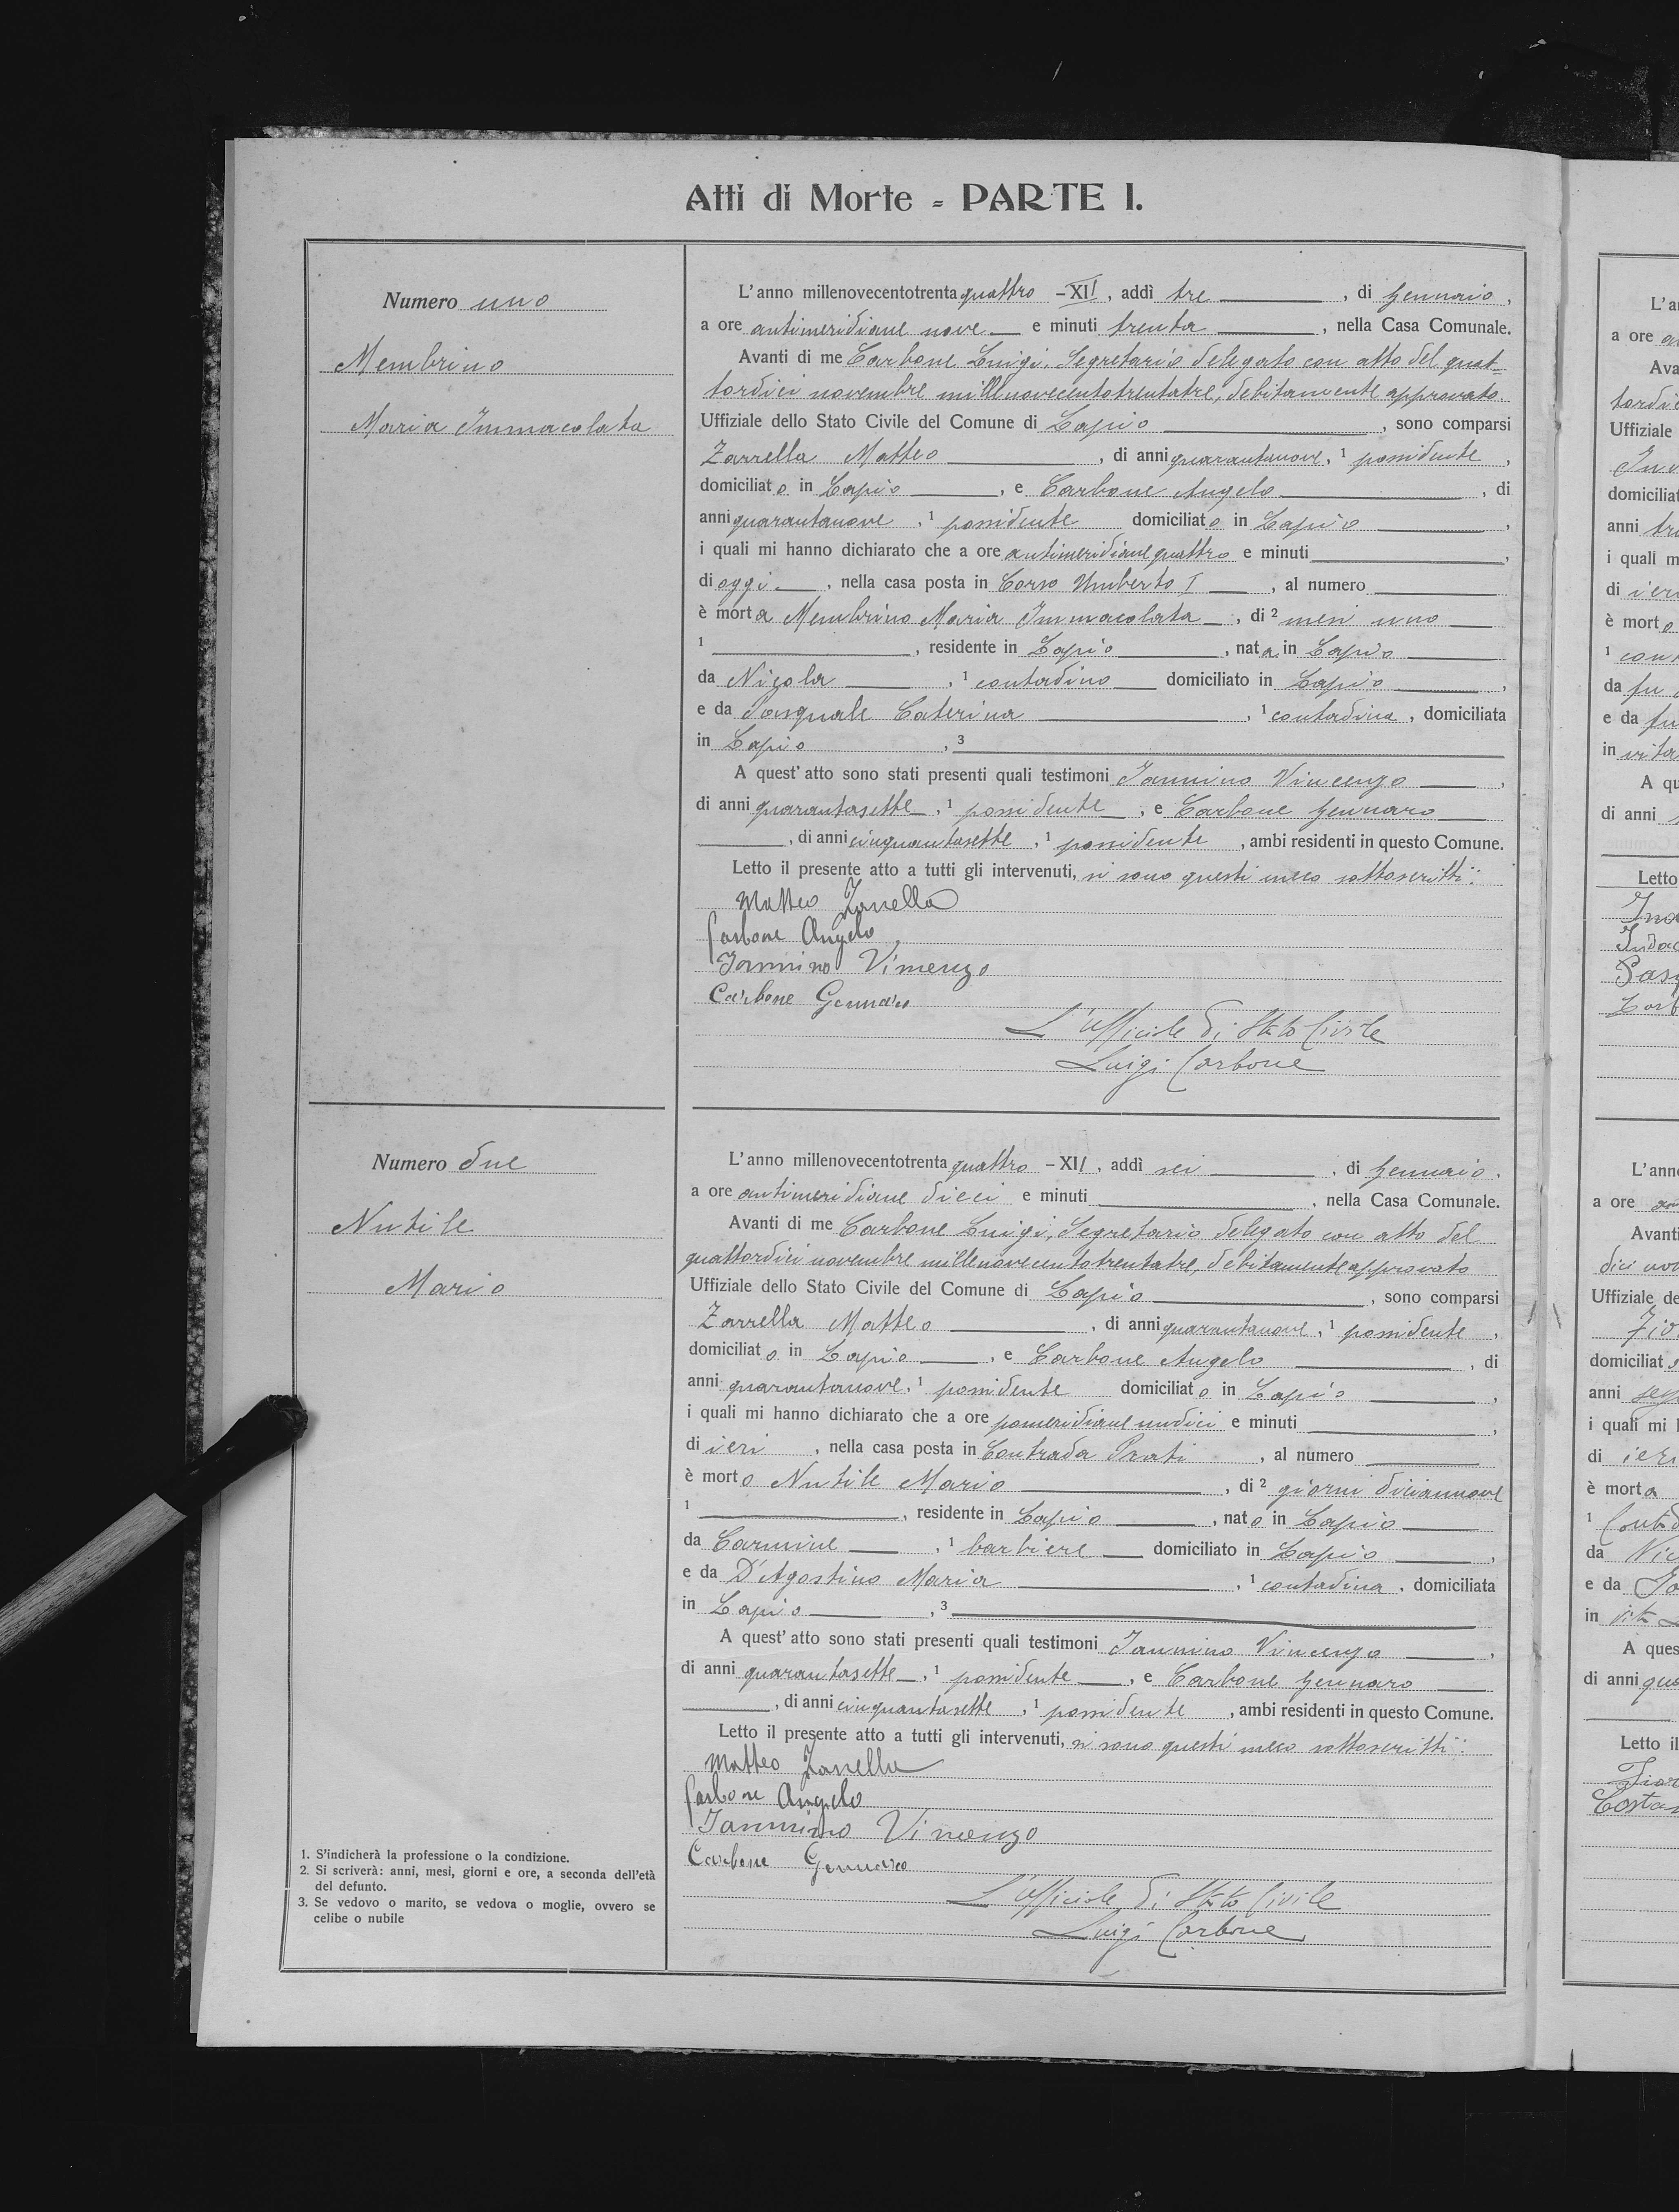 Atti di Morte - PARTE I.
Numero uno
Membrino
Maria Immacolata
L'anno millenovecentotrenta quattro - XII, addì tre , di Gennaio,
a ore antimeridiane nove e minuti trenta , nella Casa Comunale.
Avanti di me Carbone Luigi, Segretario delegato con atto del quat-
tordici novembre millenovecentotrentatre, debitamente approvato
Uffiziale dello Stato Civile del Comune di Lapio , sono comparsi
Zarrella Matteo , di anni quarantanove, 1 possidente ,
domiciliato in Lapio , e Carbone Angelo , di
anni quarantanove , 1 possidente domiciliato in Lapio ,
i quali mi hanno dichiarato che a ore antimeridiane quattro e minuti ,
di oggi , nella casa posta in Corso Umberto I , al numero
è morta Membrino Maria Immacolata , di 2 mesi uno
1 , residente in Lapio , nata in Lapio
da Nicola , 1 contadino domiciliato in Lapio ,
e da Pasquale Caterina , 1 contadina , domiciliata
in Lapio , 3
A quest' atto sono stati presenti quali testimoni Iannino Vincenzo ,
di anni quarantasette , 1 possidente , e Carbone Gennaro
, di anni cinquantasette , 1 possidente , ambi residenti in questo Comune.
Letto il presente atto a tutti gli intervenuti, si sono questi meco sottoscritti:
Matteo Zarrella
Carbone Angelo
Iannino Vincenzo
Carbone Gennaro
L'Ufficiale di Stato Civile
Luigi Carbone
Numero due
Nutile
Mario
L'anno millenovecentotrenta quattro - XII , addì sei , di Gennaio,
a ore antimeridiane dieci e minuti , nella Casa Comunale.
Avanti di me Carbone Luigi, Segretario delegato con atto del
quattordici novembre millenovecentotrentatre, debitamente approvato
Uffiziale dello Stato Civile del Comune di Lapio , sono comparsi
Zarrella Matteo , di anni quarantanove , 1 possidente ,
domiciliato in Lapio , e Carbone Angelo , di
anni quarantanove, 1 possidente domiciliato in Lapio ,
i quali mi hanno dichiarato che a ore pomeridiane undici e minuti ,
di ieri , nella casa posta in Contrada Prati , al numero
è morto Nutile Mario , di 2 giorni diciannove
1 , residente in Lapio , nato in Lapio
da Carmine , 1 barbiere domiciliato in Lapio ,
e da D'Agostino Maria , 1 contadina , domiciliata
in Lapio , 3
A quest' atto sono stati presenti quali testimoni Iannino Vincenzo ,
di anni quarantasette , 1 possidente , e Carbone Gennaro
, di anni cinquantasette , 1 possidente , ambi residenti in questo Comune.
Letto il presente atto a tutti gli intervenuti, si sono questi meco sottoscritti:
Matteo Zarrella
Carbone Angelo
Iannino Vincenzo
Carbone Gennaro
L'Ufficiale di Stato Civile
Luigi Carbone
1. S'indicherà la professione o la condizione.
2. Si scriverà: anni, mesi, giorni e ore, a seconda dell'età
del defunto.
3. Se vedovo o marito, se vedova o moglie, ovvero se
celibe o nubile